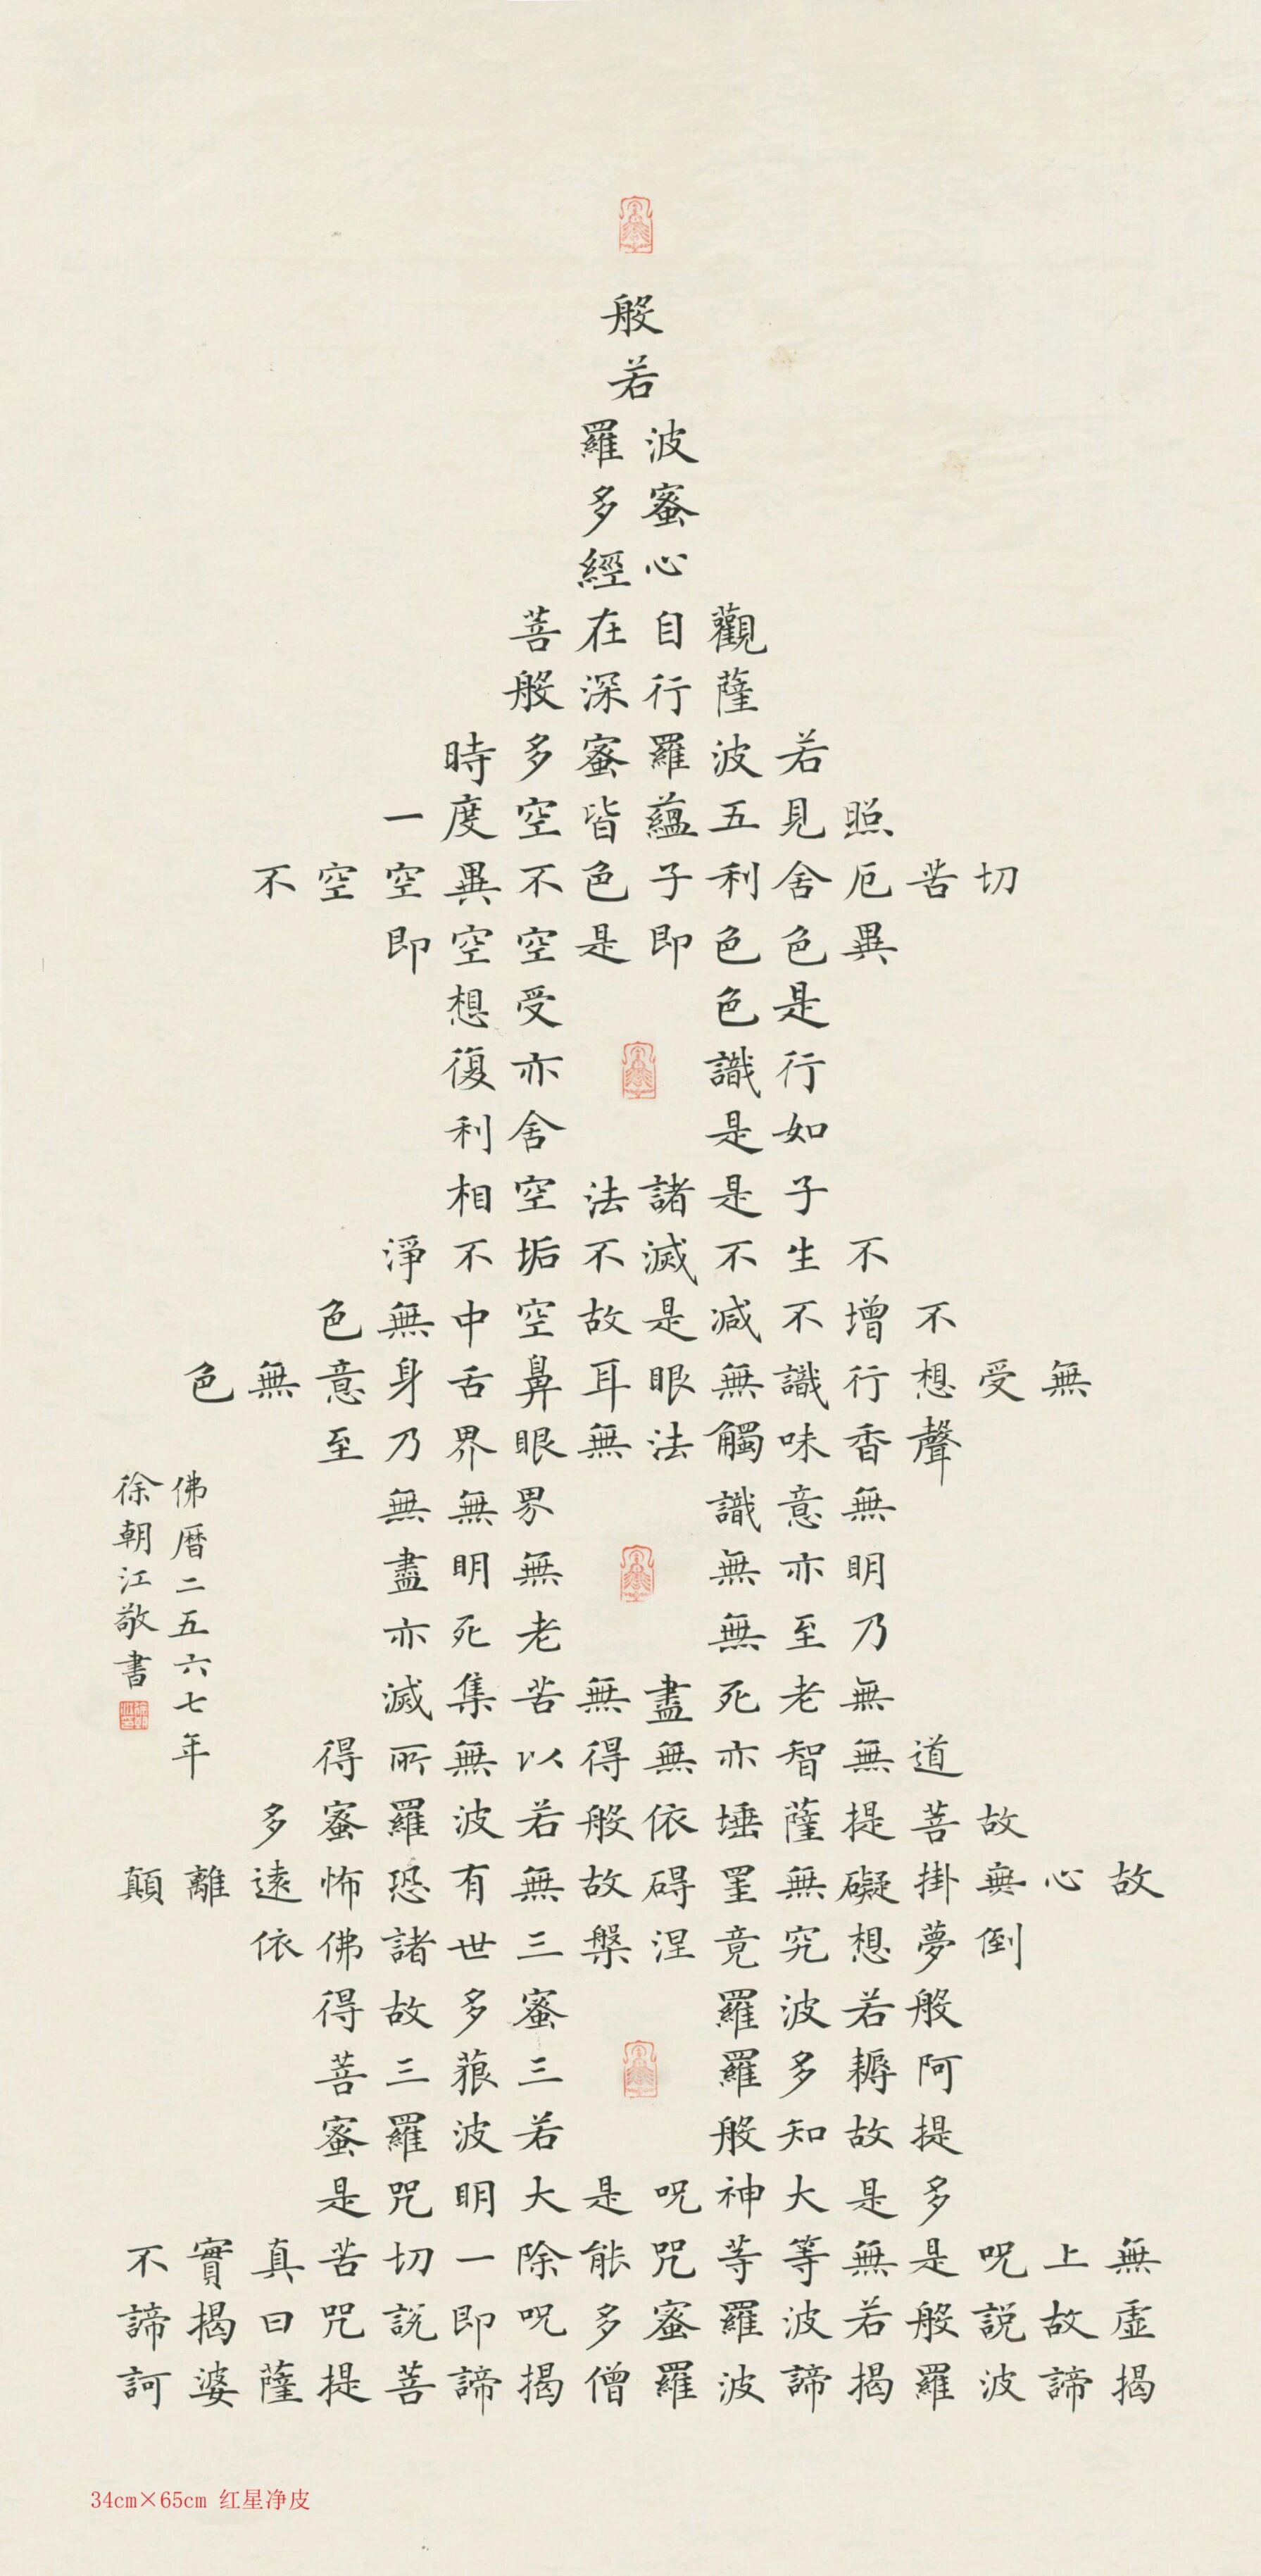 般
若
波羅
蜜多
心經
觀自在菩
薩行深般
若波羅蜜多時
照見五蘊皆空度一
切苦厄舍利子色不異空空不
異色色即是空空即
是色受想
行識亦復
如是舍利
子是諸法空相
不生不滅不垢不淨
不增不減是故空中無色
無受想行識無眼耳鼻舌身意無色
聲香味觸法無眼界乃至
無意識界無無
明亦無無明盡
乃至無老死亦
無老死盡無苦集滅
道無智亦無得以無所得
故菩提薩埵依般若波羅蜜多
故心無掛礙無罣碍故無有恐怖遠離顛
倒夢想究竟涅槃三世諸佛依
般若波羅蜜多故得
阿耨多羅三藐三菩
提故知般若波羅蜜
多是大神呪是大明咒是
無上呪是無等等咒能除一切苦真實不
虛故説般若波羅蜜多呪即説咒曰揭諦
揭諦波羅揭諦波羅僧揭諦菩提薩婆訶
佛曆二五六七年
徐朝江敬書
34cm×65cm 红星净皮